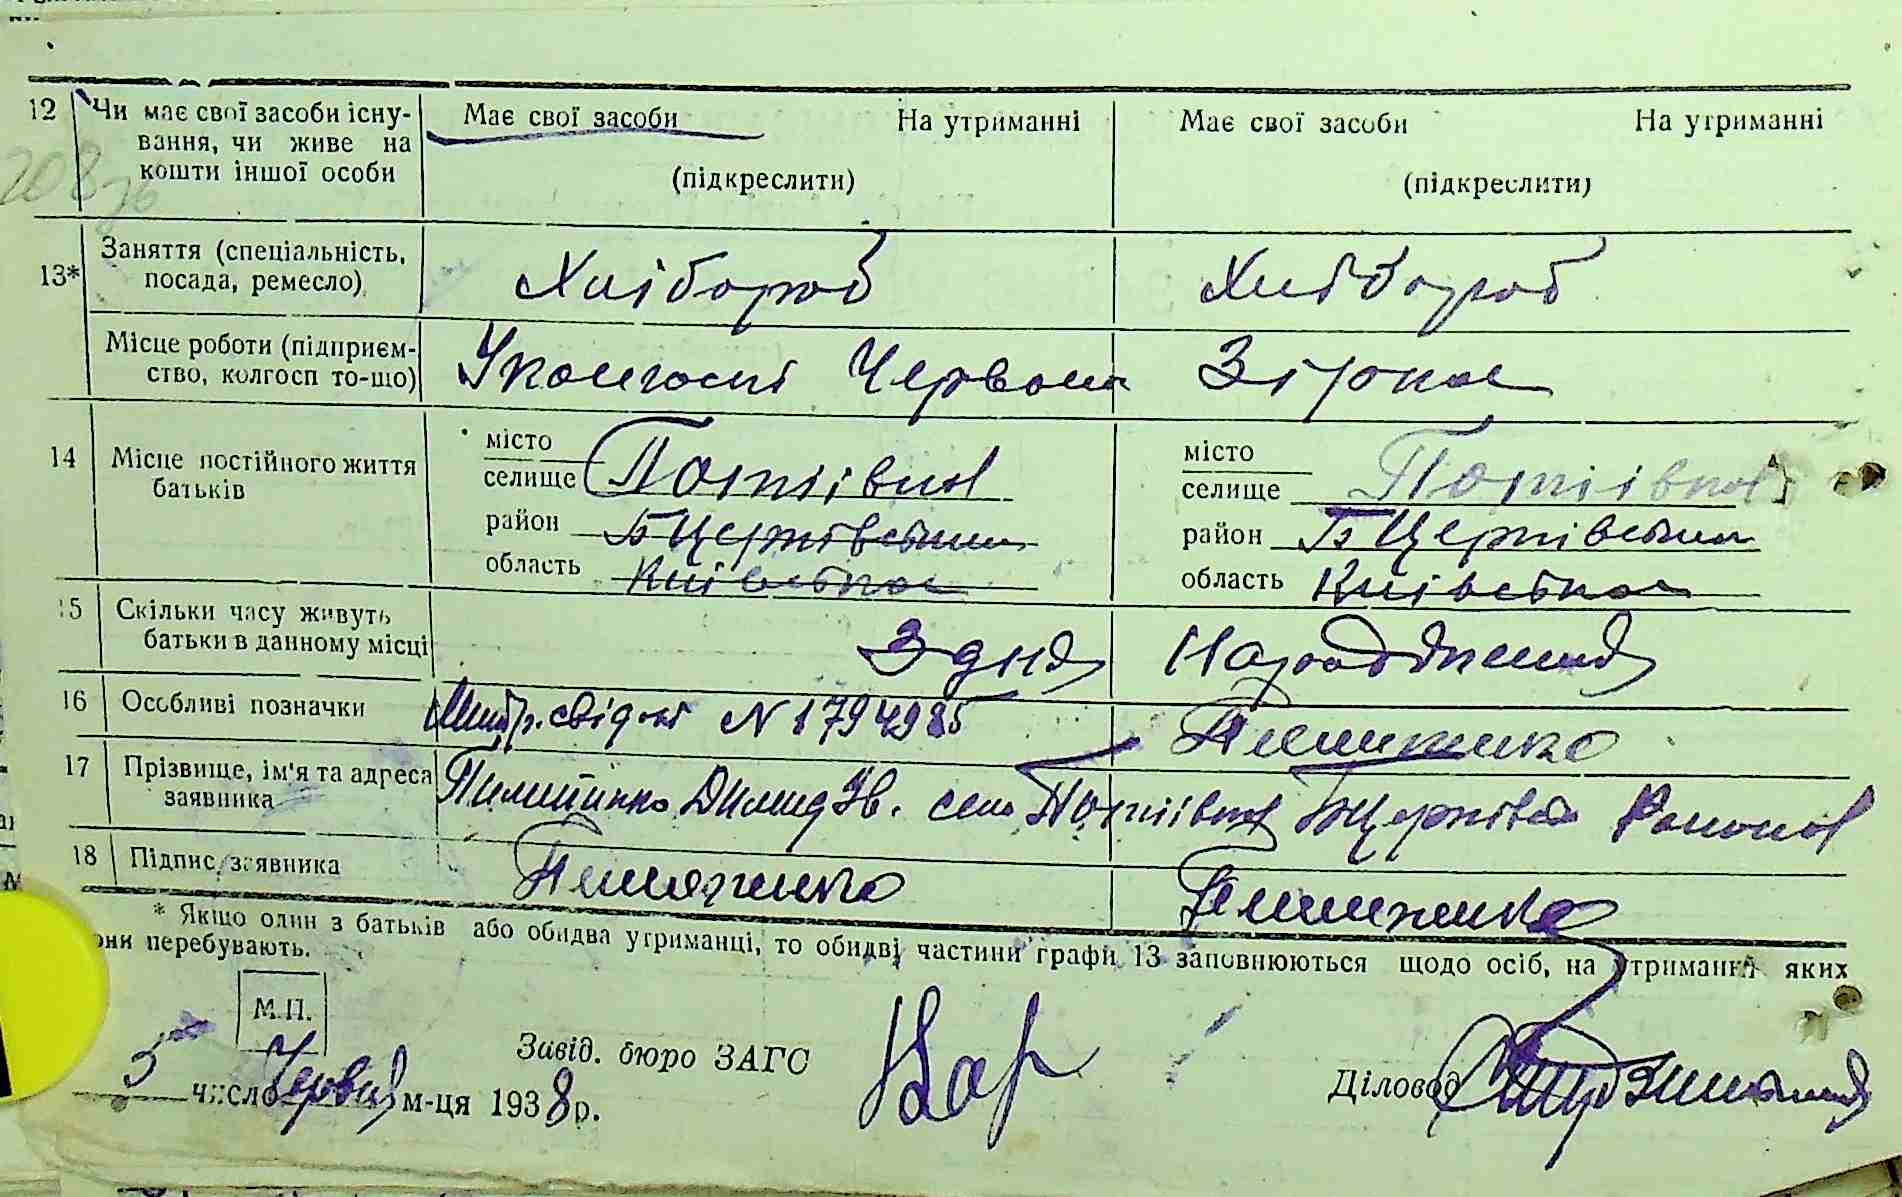 12 Чи має свої засоби існу-
вання, чи живе на
кошти іншої особи
Має свої засоби На утриманні
(підкреслити)
Має свої засоби На утриманні
(підкреслити)
13* Заняття (спеціальність,
посада, ремесло)
Хлібороб Хлібороб
Місце роботи (підприєм-
ство, колгосп то-що)
У колгоспі Червона Зірка
14 Місце постійного життя
батьків
місто
селище Потіївка
район Б Церківський
область Київська
місто
селище Потіївка
район Б Церківський
область Київська
15 Скільки часу живуть
батьки в данному місці
З дня Народження
16 Особливі позначки
свідоцт N 1794985
17 Прізвище, ім'я та адреса
заявника
село Потіївка Району
18 Підпис заявника
* Якщо один з батьків або обидва утриманці, то обидві частини графи 13 заповнюються щодо осіб, на утриманні яких
они перебувають.
М.П.
5 число Червня м-ця 1938 р.
Завід. бюро ЗАГС
Діловод